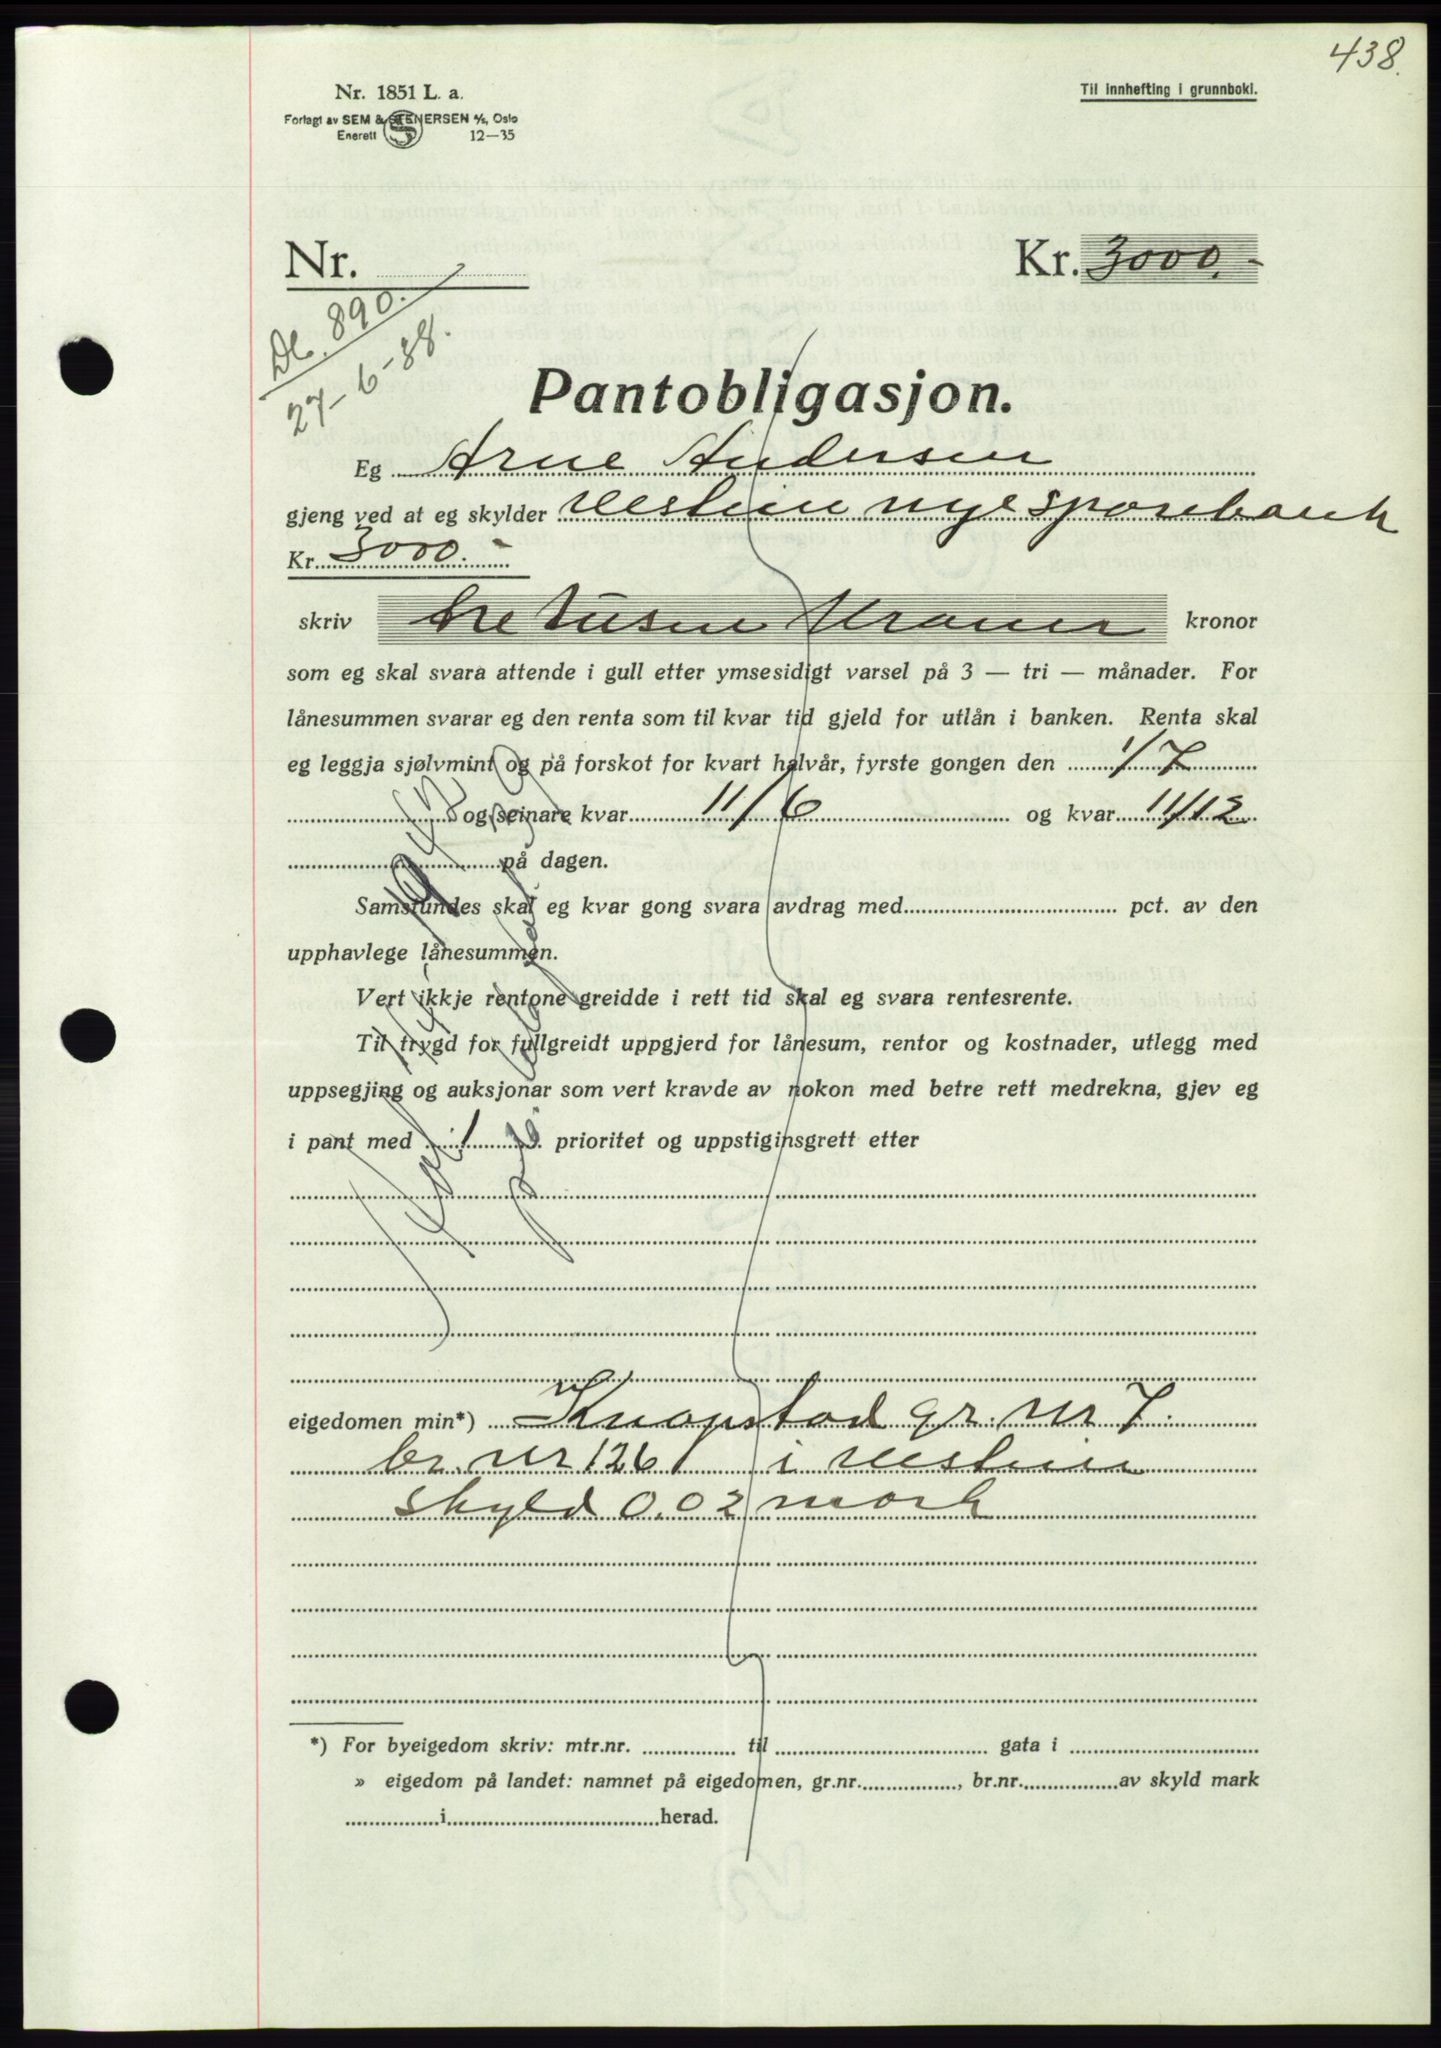 438.
Nr. 1851 L. a.
Forlagt av SEM & STENERSEN A/S, Oslo
Enerett 12—35
Til innhefting i grunnboki.
Nr.
Kr. 3000.-
Db. 890.
27-6-38.
Pantobligasjon.
Eg Arne Andersen
gjeng ved at eg skylder Vestnes nye sparebank
Kr. 3000.-
skriv tre tusen Kroner kronor
som eg skal svara attende i gull etter ymsesidigt varsel på 3 — tri — månader. For
lånesummen svarar eg den renta som til kvar tid gjeld for utlån i banken. Renta skal
eg leggja sjølvmint og på forskot for kvart halvår, fyrste gongen den 1/7
og seinare kvar 11/6 og kvar 11/12
på dagen.
Samstundes skal eg kvar gong svara avdrag med pct. av den
upphavlege lånesummen.
Vert ikkje rentone greidde i rett tid skal eg svara rentesrente.
Til trygd for fullgreidt uppgjerd for lånesum, rentor og kostnader, utlegg med
uppsegjing og auksjonar som vert kravde av nokon med betre rett medrekna, gjev eg
i pant med 1 prioritet og uppstiginsgrett etter
eigedomen min*) Knapstad gr. nr 7.
br. nr 126 i Vestnes
skyld 0.02 mark
*) For byeigedom skriv: mtr.nr. til gata i
» eigedom på landet: namnet på eigedomen, gr.nr. , br.nr. av skyld mark
i herad.